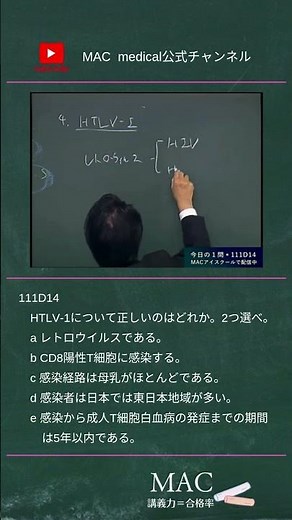 MAC medical公式チャンネル
4. HTLV-I
HIV
今日の1問・111D14
MACアイスクールで配信中
111D14
HTLV-1について正しいのはどれか。2つ選べ。
a レトロウイルスである。
b CD8陽性T細胞に感染する。
c 感染経路は母乳がほとんどである。
d 感染者は日本では東日本地域が多い。
e 感染から成人T細胞白血病の発症までの期間
は5年以内である。
MAC
講義力=合格率